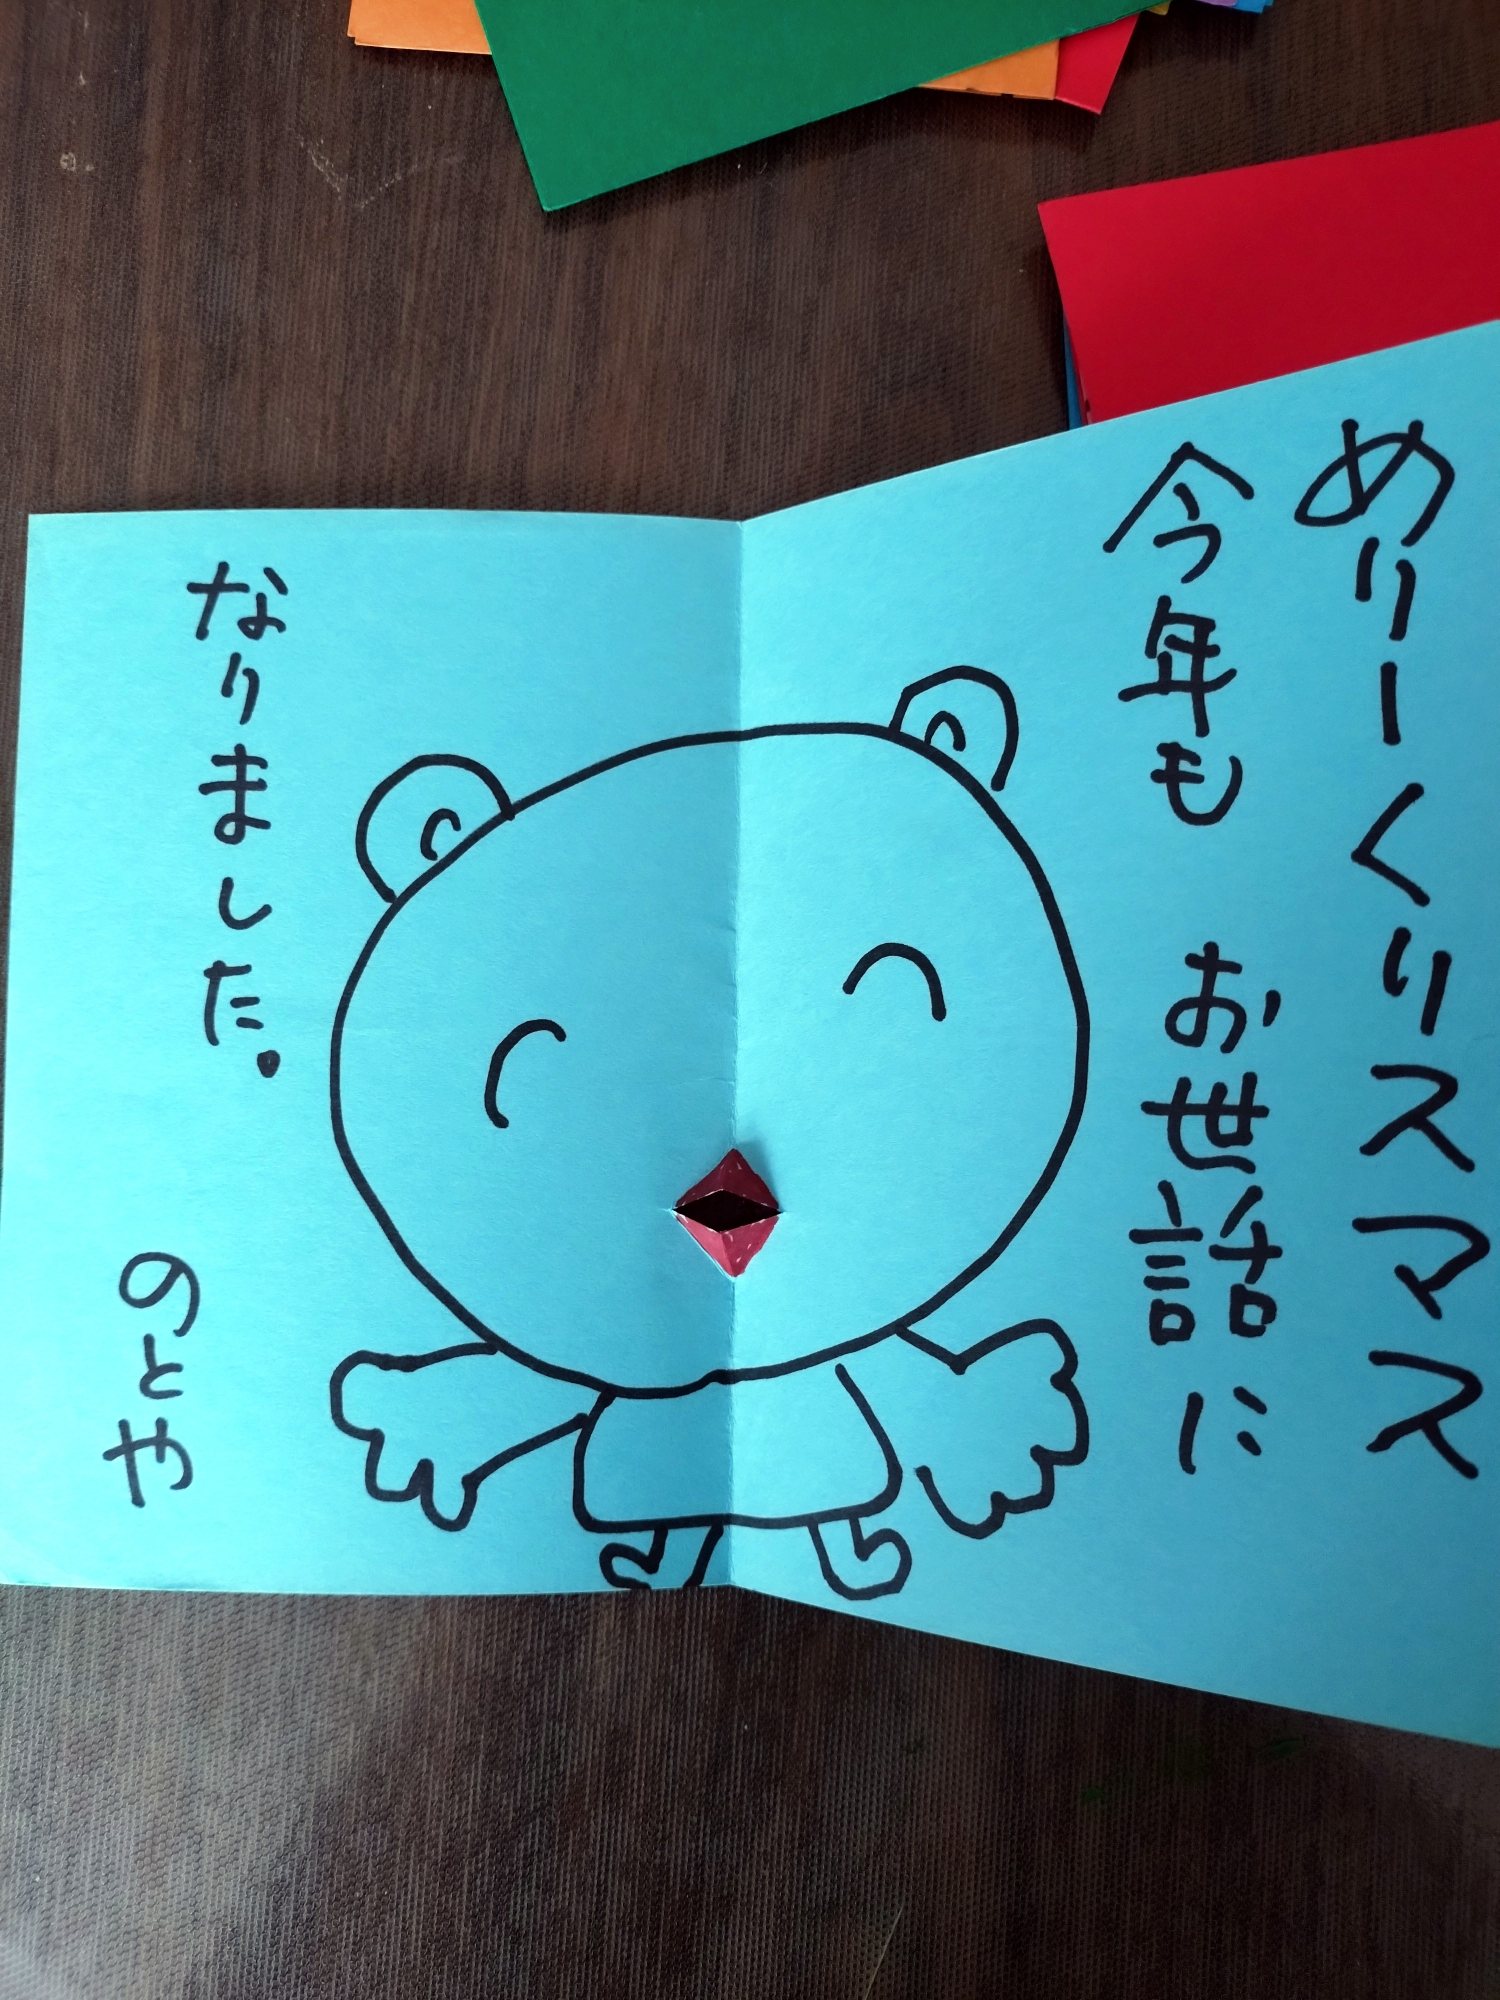 めりーくりスマス
今年も お世話に
なりました.
のとや